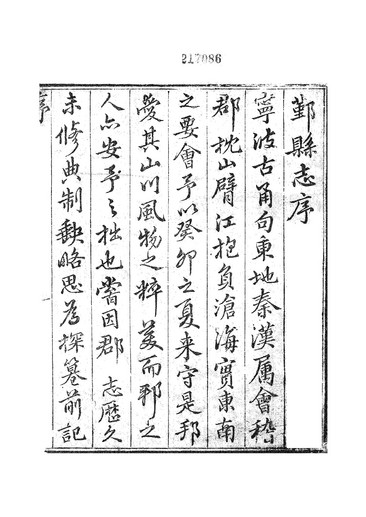 217086
鄞縣志序
寧波古甬句東地秦漢属會稽
郡枕山臂江抱負滄海實東南
之要會予以癸卯之夏来守是邦
愛其山川風物之粹美而邦之
人亦安予之拙也嘗因郡志歷久
未修典制軼略思為探纂前記
序